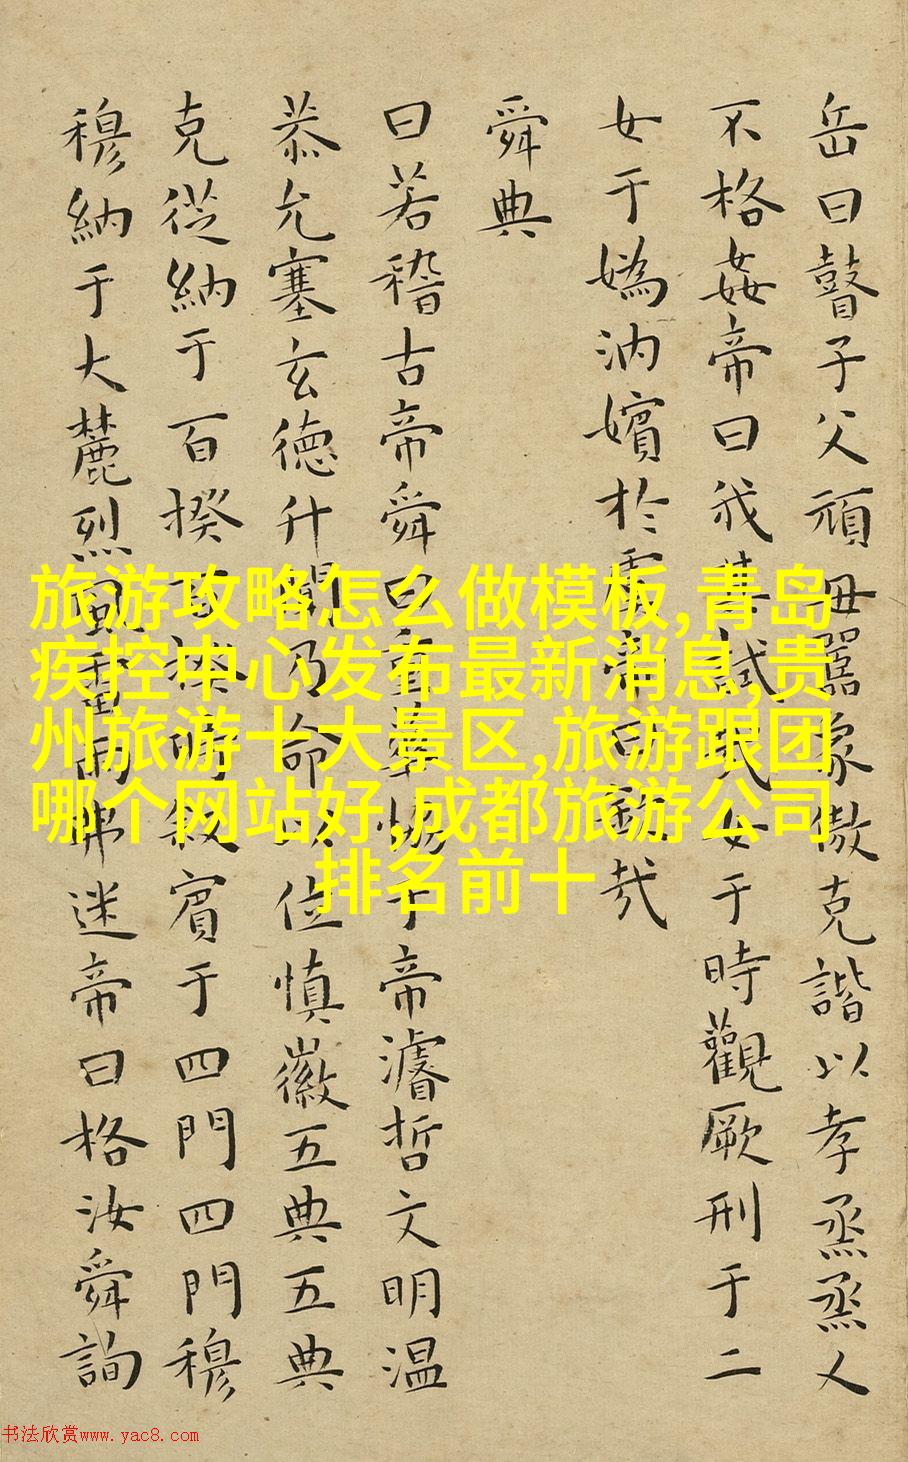 岳曰瞽子父頑毋嚚象傲克諧以孝烝烝乂
不格姦帝曰我其試哉女于時觀厥刑于二
女于媯汭嬪於虞帝曰欽哉
舜典
曰若稽古帝舜曰重華協于帝濬哲文明温
恭允塞玄德升聞乃命以位慎徽五典五典
克從納于百揆百揆時敘賓于四門四門穆
穆納于大麓烈風雷雨弗迷帝曰格汝舜詢
旅游攻略怎么做模板,青岛
疾控中心发布最新消息,贵
州旅游十大景区,旅游跟团
哪个网站好,成都旅游公司
排名前十
书法欣赏www.yac8.com